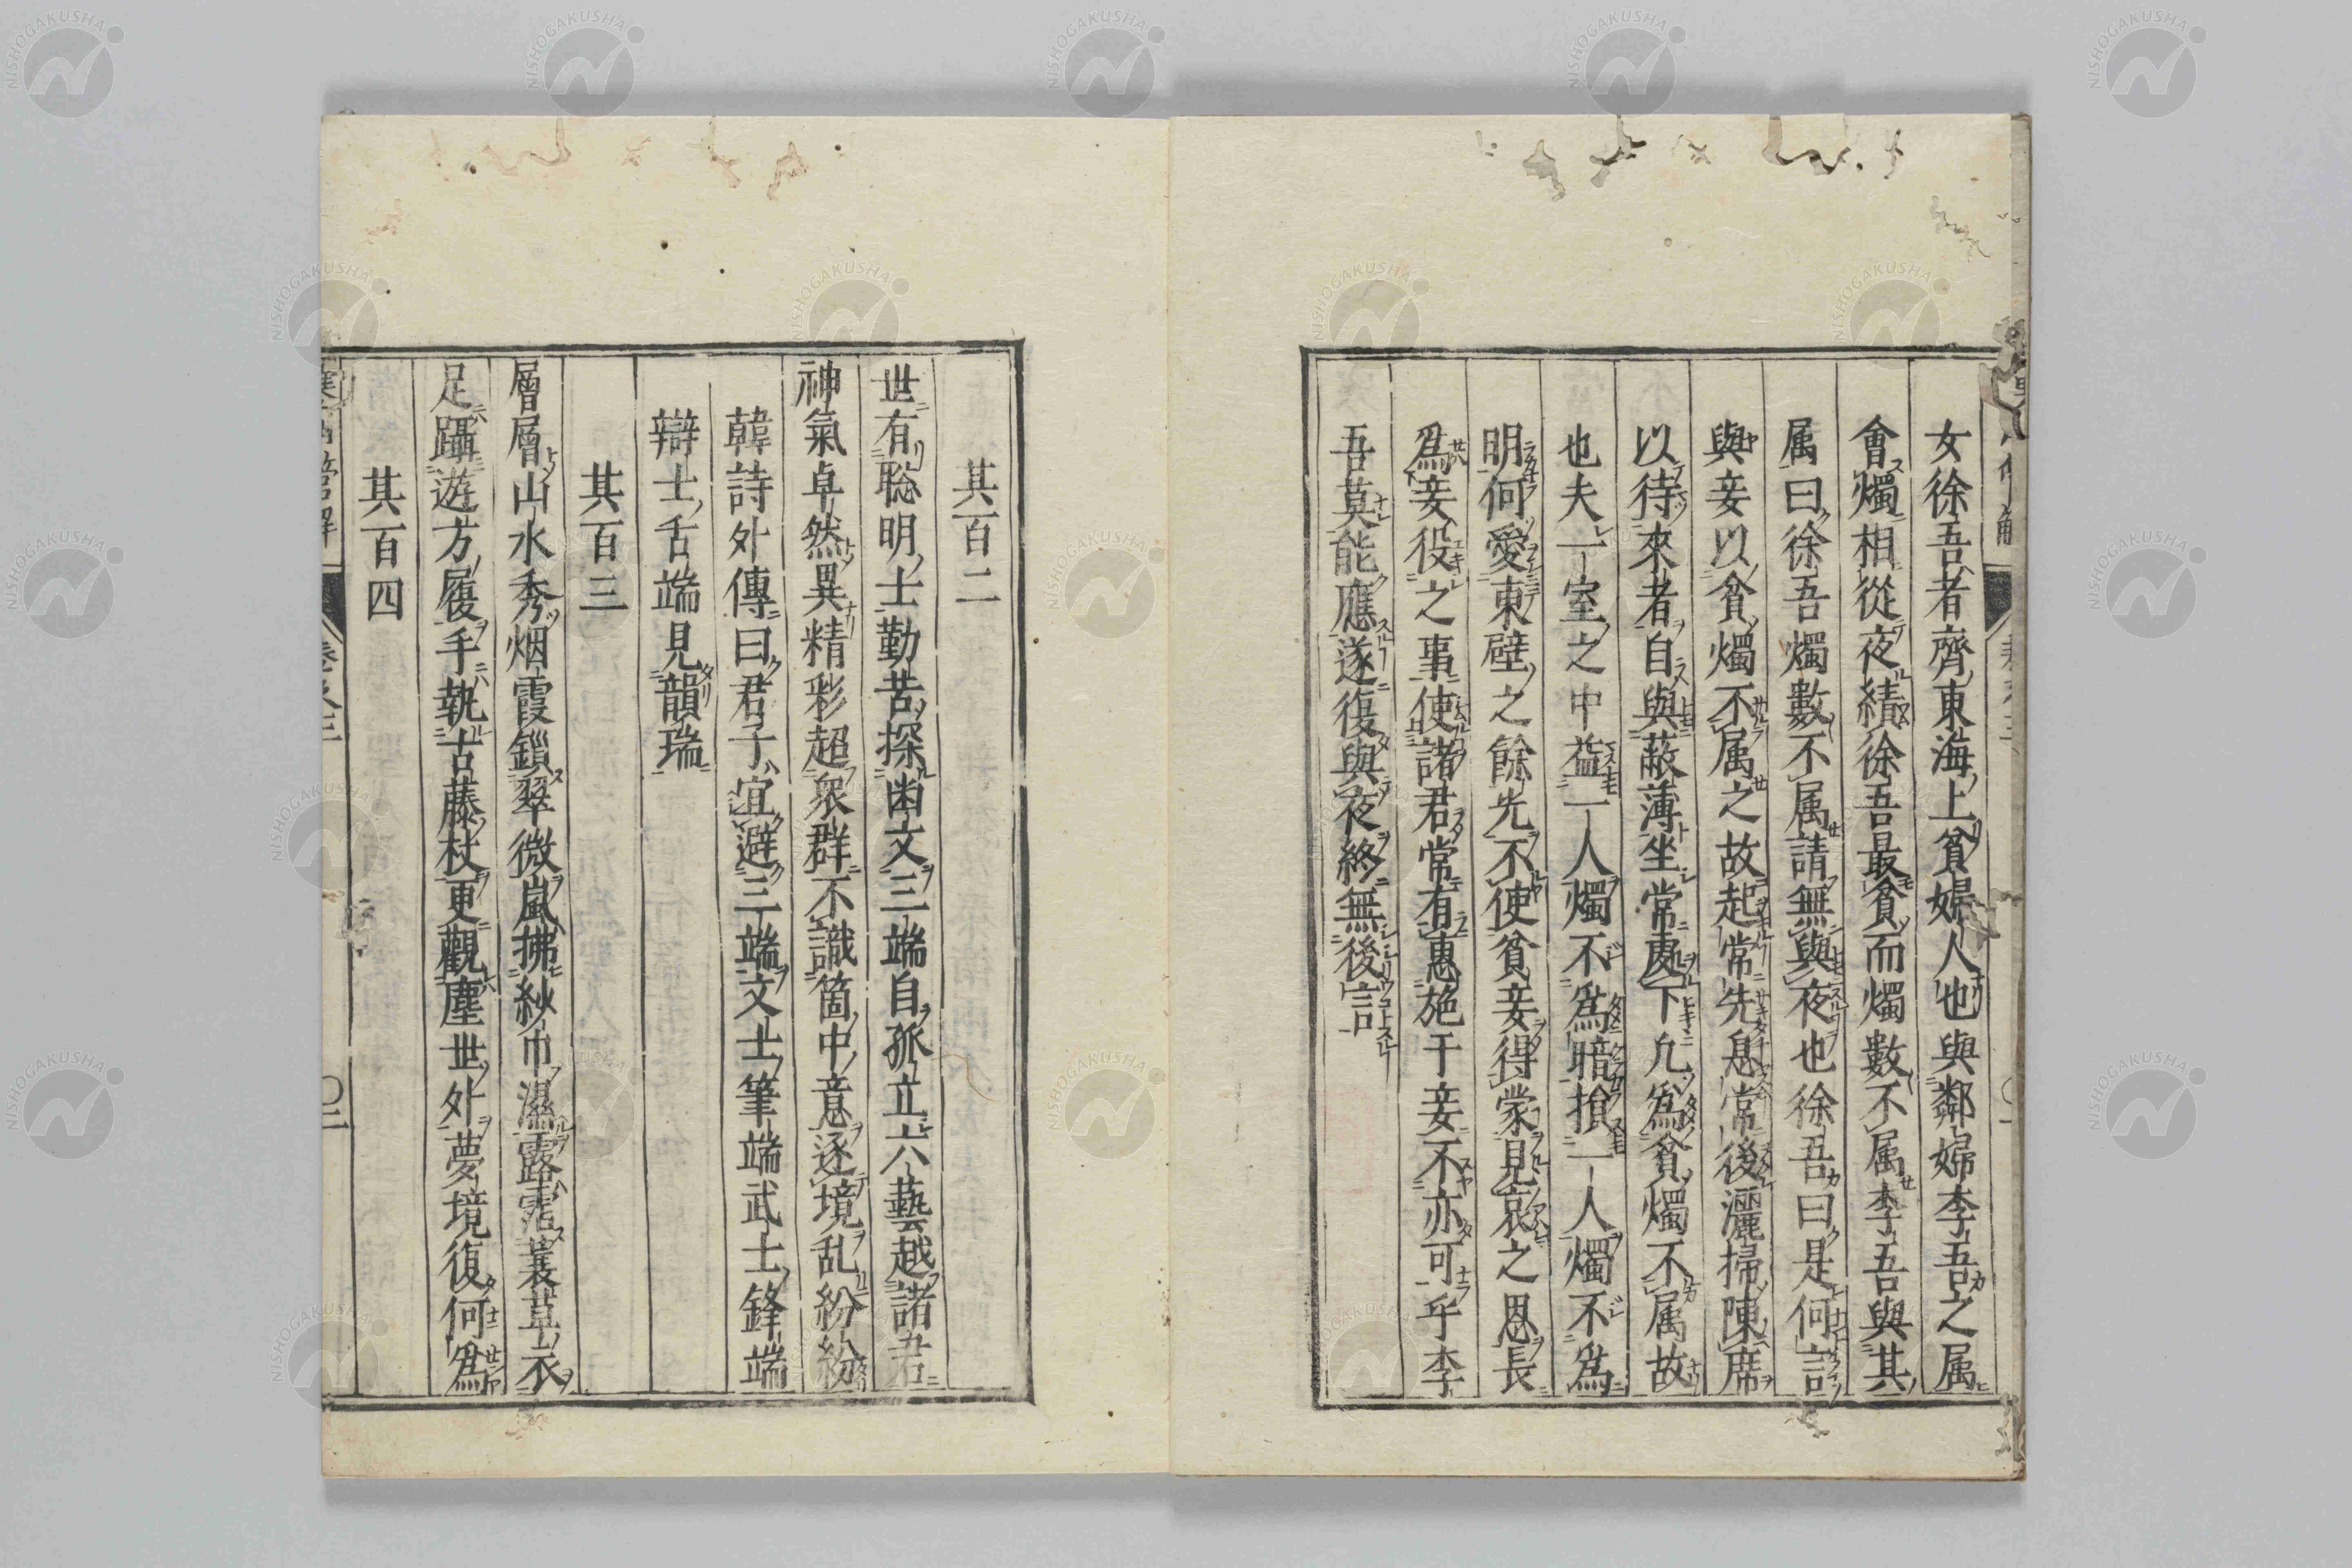 女徐吾者齊東海上貧婦人也與鄰婦李吾之属
會燭相從夜績徐吾最貧而燭數不属李吾與其
属曰徐吾燭數不属請無與夜也徐吾曰是何言
與妾以貧燭不属之故起常先息常後灑掃陳席
以待來者自與蔽薄坐常處下凢為貧燭不属故
也夫一室之中益一人燭不爲暗損一人燭不爲
明何愛東壁之餘光不使貧妾得蒙見哀之恩長
爲妾役之事使諸君常有惠施于妾不亦可乎李
吾莫能應遂復與夜終無後言
其百二
世有聡明士勤苦探幽文三端自孤立六藝越諸君
神氣卓然異精彩超衆群不識箇中意逐境乱紛紛
韓詩外傳曰君子宜避三端文士筆端武士鋒端
辯士舌端見韻瑞
其百三
層層山水秀烟霞鎖翠微嵐拂紗巾濕露霑蓑草衣
足躡遊方履手執古藤杖更觀塵世外夢境復何爲
其百四
NISHOGAKUSHA